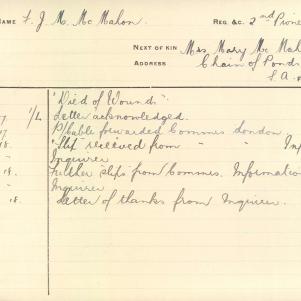 NAME F. J. M. McMahon. REG. &C. 2nd Pione
NEXT OF KIN Mrs. Mary McMah
ADDRESS Chain of Ponds
S.A.
"Died of Wounds"
17 1/L Letter acknowledged.
17 P/Cable forwarded Commrs London
18. "Slip" received from " " Inf
" Inquirer
18. Further slips from Commrs. Informatio
" Inquirer
18. Letter of thanks from Inquirer.